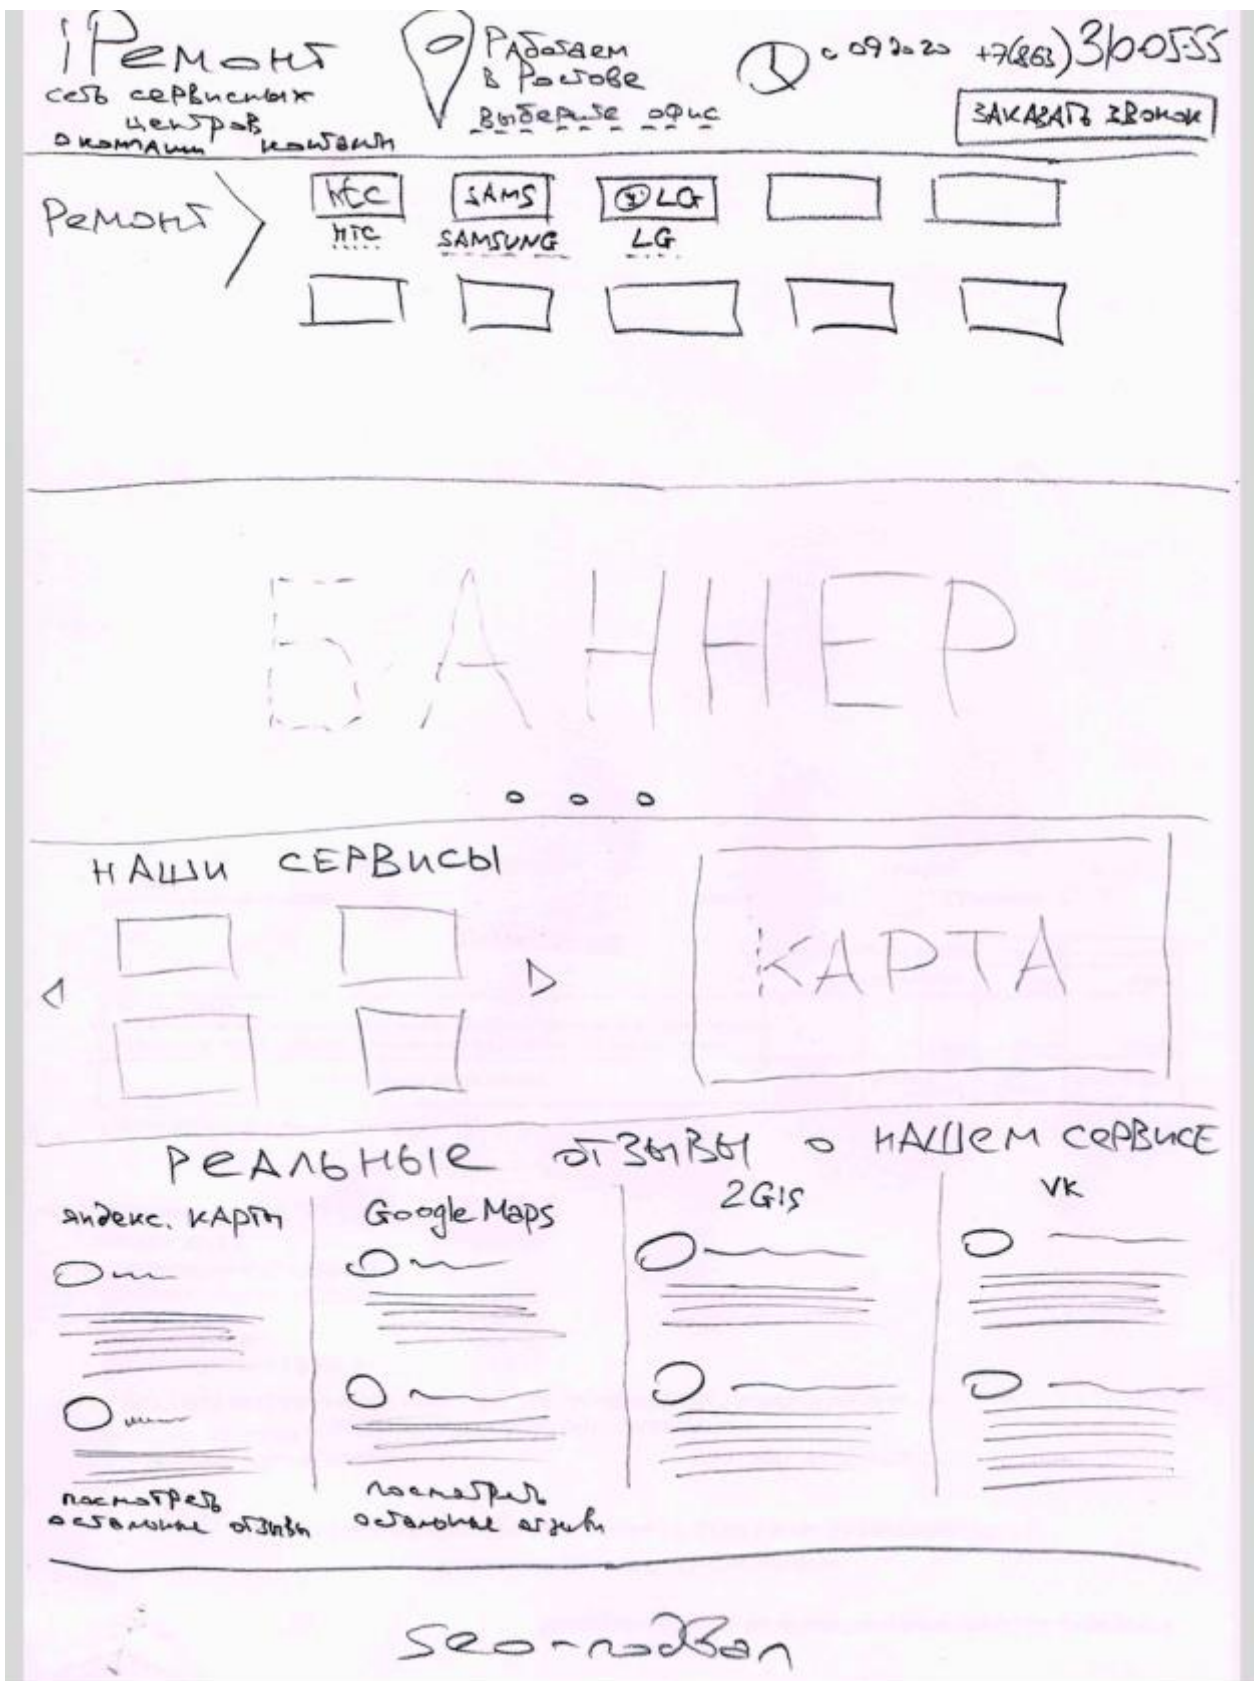 iРемонт
сеть сервисных
центров
о компании контакты
Работаем
в Ростове
выберите офис
с 09 до 20
+7(863) 3100555
ЗАКАЗАТЬ ЗВОНОК
Ремонт
HTC SAMS LG
HTC SAMSUNG LG
БАННЕР
НАШИ СЕРВИСЫ
КАРТА
РЕАЛЬНЫЕ ОТЗЫВЫ О НАШЕМ СЕРВИСЕ
Яндекс. КАРТЫ Google Maps 2Gis VK
посмотреть
остальные отзывы
посмотреть
остальные отзывы
seo-подвал